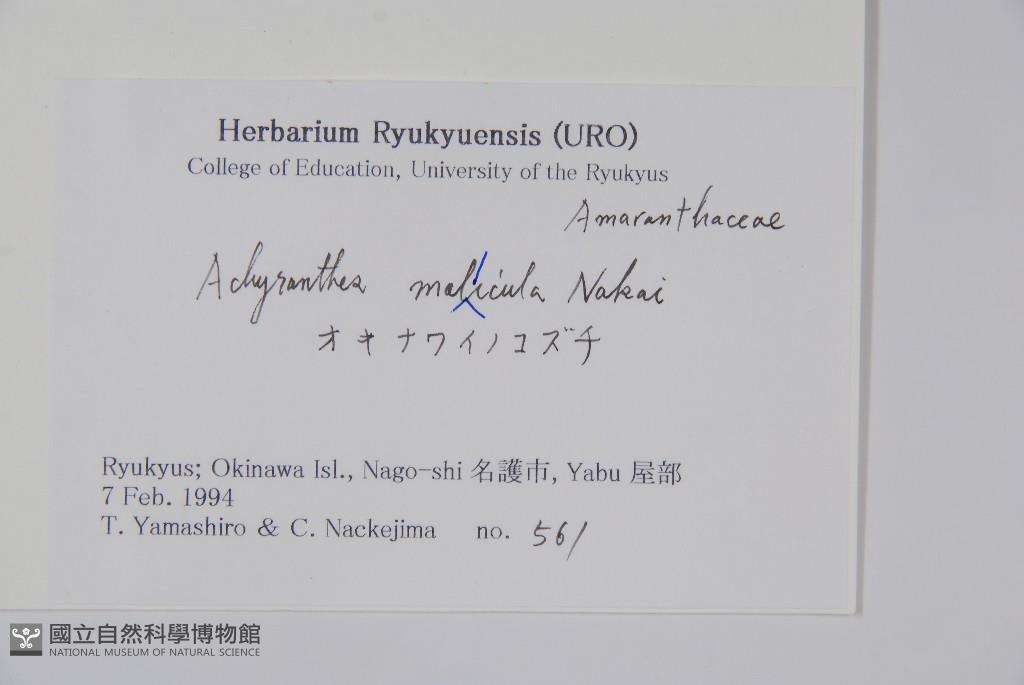 Herbarium Ryukyuensis (URO)
College of Education, University of the Ryukyus
Amaranthaceae
Achyranthes malicula Nakai
オキナワイノコズチ
Ryukyus; Okinawa Isl., Nago-shi 名護市, Yabu 屋部
7 Feb. 1994
T. Yamashiro & C. Nackejima no. 561
國立自然科學博物館
NATIONAL MUSEUM OF NATURAL SCIENCE